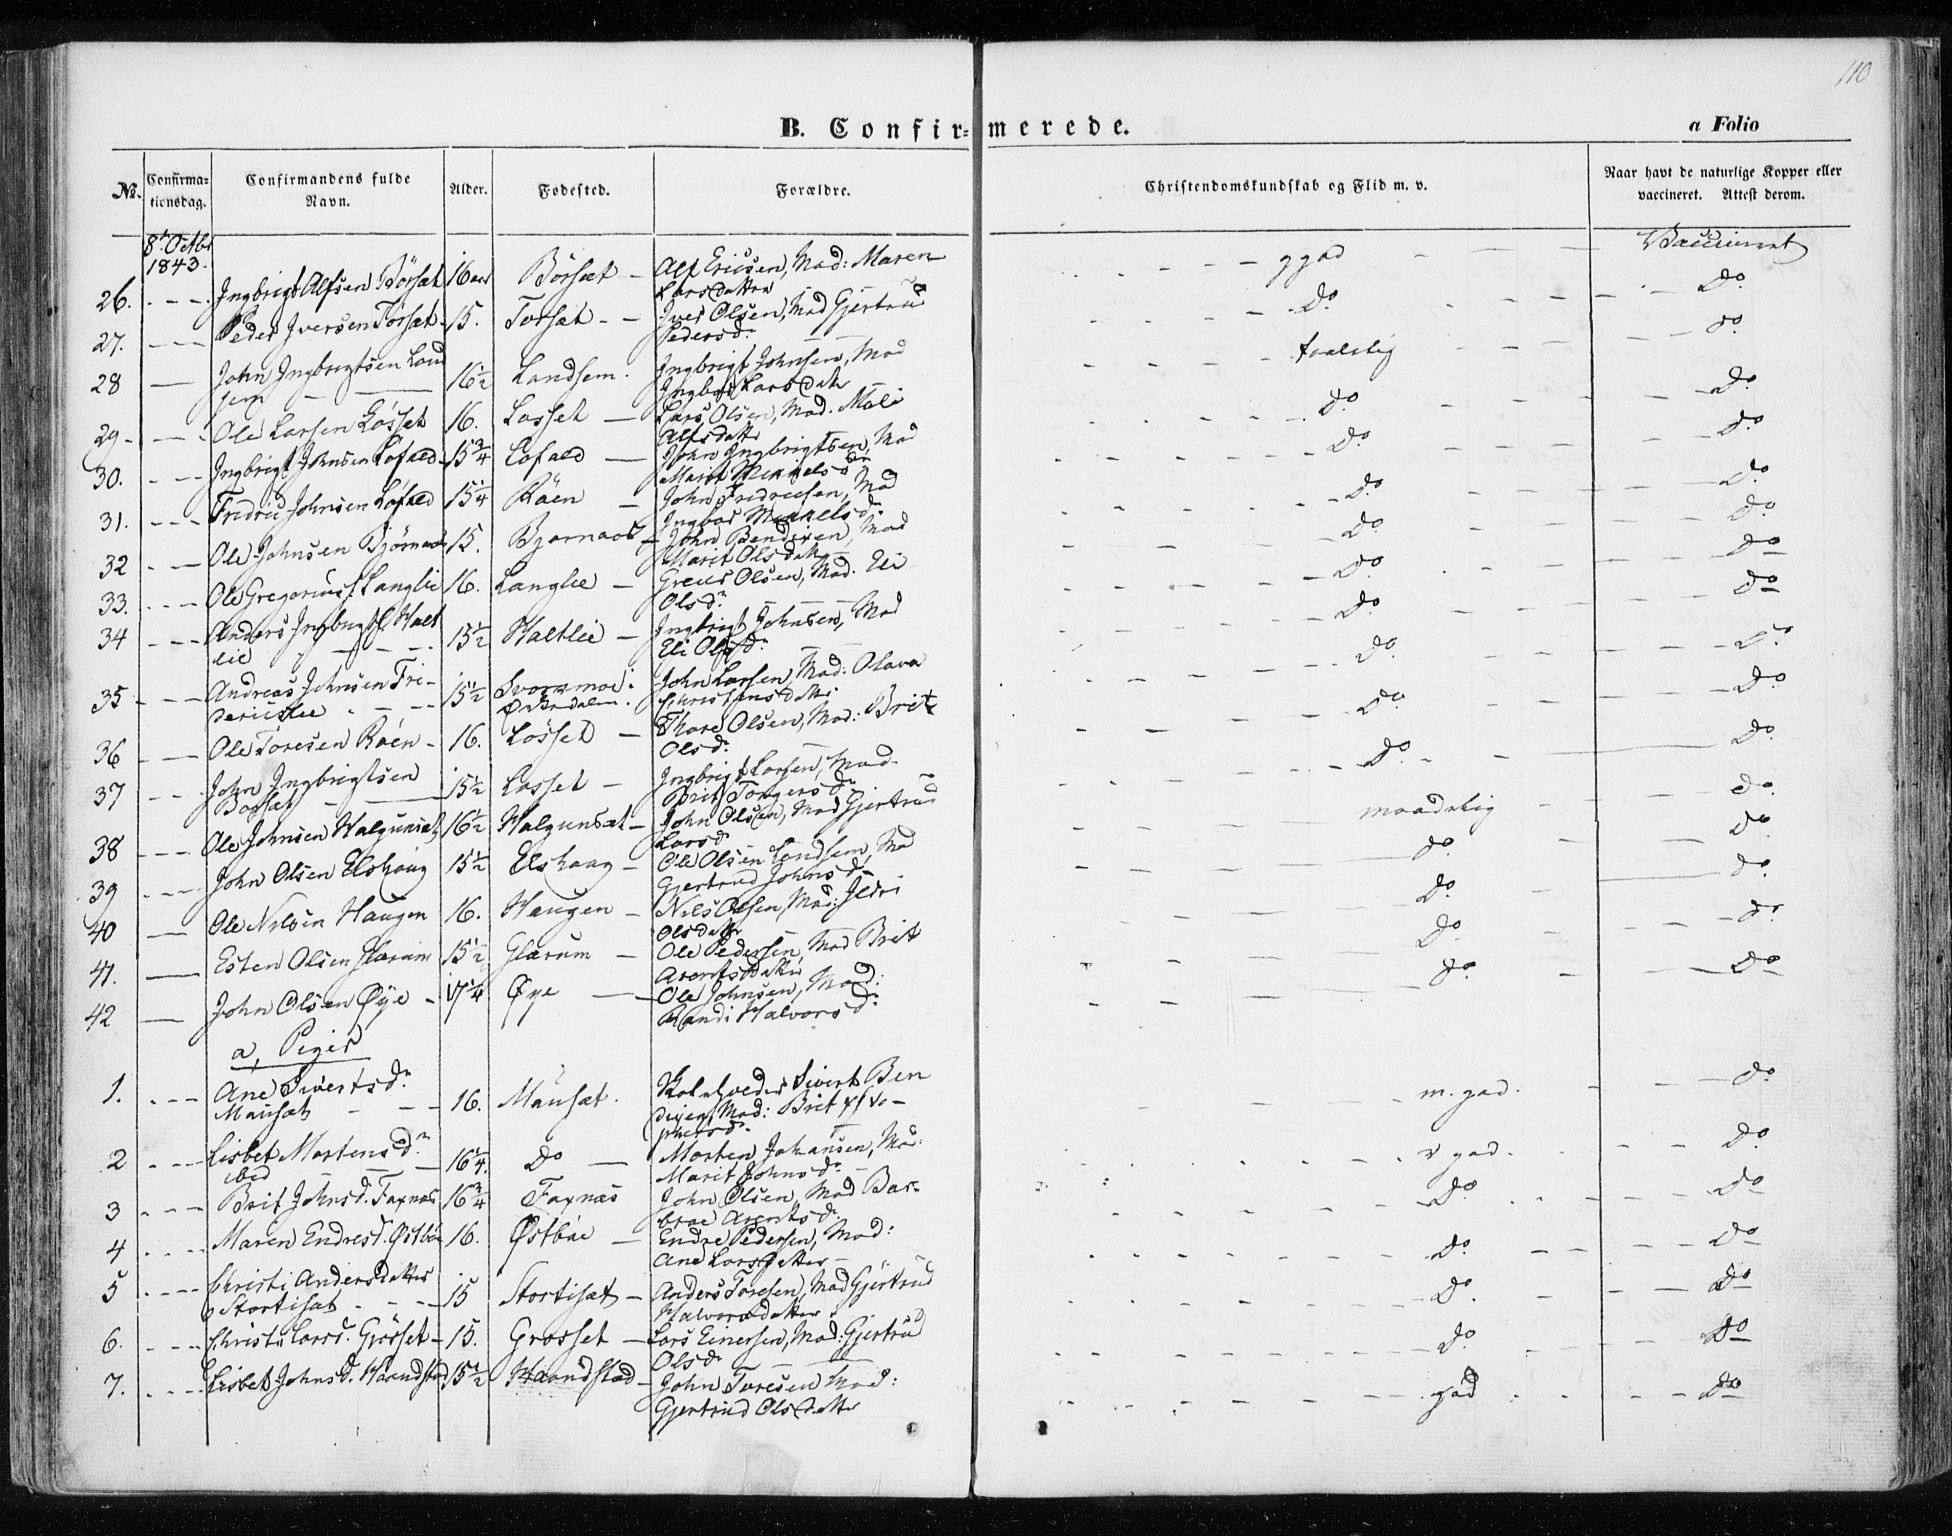 110
B. Confirmerede.
a Folio
No. Confirmationsdag. Confirmandens fulde Navn. Alder. Fodested. Forældre. Christendomskundskab og Flid m. v. Naar havt de naturlige Kopper eller vaccineret. Attest derom.
8' Octbr
1843.
26. Ingbrigt Alfsen Börsæt 16 Börsæt Alf Ericsen, Mod: Maren Larsdatter ggod Vaccineret
27. Peder Iversen Torsæt 15. Torsæt Iver Olsen, Mod Gjertrud Pedersd. Do Do
28 John Ingbrigtsen Landsem 16½ Landsem. Ingbrigt Johnsen, Mod Ingbor Larsdatter taalelig do
29 Ole Larsen Lösset 16. Losset Lars Olsen, Mod. Mali Alfsdatter Do Do
30. Ingbrigt Johnsen Lofald 15¾ Lofald John Ingbrigtsen, Mod Marit Mikkelsd Do Do
31. Fredric Johnsen Lofald 15¼ Röen John Fredricsen, Mod Ingbor Mikkelsd. Do Do
32 Ole Johnsen Bjørnaas 15. Bjørnaas John Bendixen, Mod Marit Olsdatter Do Do
33. Ole Gregorius. Langlie 16. Langlie Greus Olsen, Mod. Eli Olsd. Do Do
34 Anders Ingbrigts. Haltlie 15½ Haltlie Ingbrigt Johnsen, Mod Eli Olsd. Do Do
35 Andreas Johnsen Fridericslie 15½ Svormoe i John Larsen, Mod: Olava Christensdatter Do Do
36 Ole Toresen Röen 16. Lösset Thore Olsen, Mod: Brit Olsd. Do Do
37 John Ingbrigtsen Bolsæt 15½ Losset Ingbrigt Larsen, Mod. Brit Torgersd. Do. Do
38 Ole Johnsen Halgunsæt 16½ Halgunsæt John Olsen, Mod Gjertrud Larsd maadelig Do.
39 John Olsen Elshaug 15½ Elshaug Ole Olsen Landsem, Mod Gjertrud Johnsd. do Do
40 Ole Nilsen Haugen 16. Haugen Nils Olsen, Mod: Ildri Olsdatter Do Do
41. Esten Olsen Glærum 15½ Glærum Ole Pedersen, Mod Brit Arentsdatter Do do
42 John Olsen Øye 17¼ Øye Ole Johnsen, Mod: Randi Halvorsd: Do Do
a, Piger
1. Ane Sivertsd. Mausæt 16. Mausæt. Sivert Bendixen, Mod: Brit m. god. Do
2 Lisbet Mortensd. ibid 16¼ Do Morten Johansen, Mod: Marit Johnsd. god. Do
3 Brit Johnsd. Faxnæs 16¾ Faxnæs John Olsen, Mod Barbroe Arentsd. Do Do
4 Maren Endresd. Østböe 16. Østböe Endre Pedersen, Mod: Ane Larsdatter Do Do
5 Christi Andersdatter Stortisæt 15 Stortisæt Anders Toresen, Mod Gjertrud Halvorsdatter Do Do
6. Christi Larsd. Grösset 15. Grosset Lars Einersen, Mod: Gjertrud Olsd. Do. Do
7. Lisbet Johnsd. Haandstad 15½ Haandstad John Toresen Mod: Gjertrud Olsdatter god Do